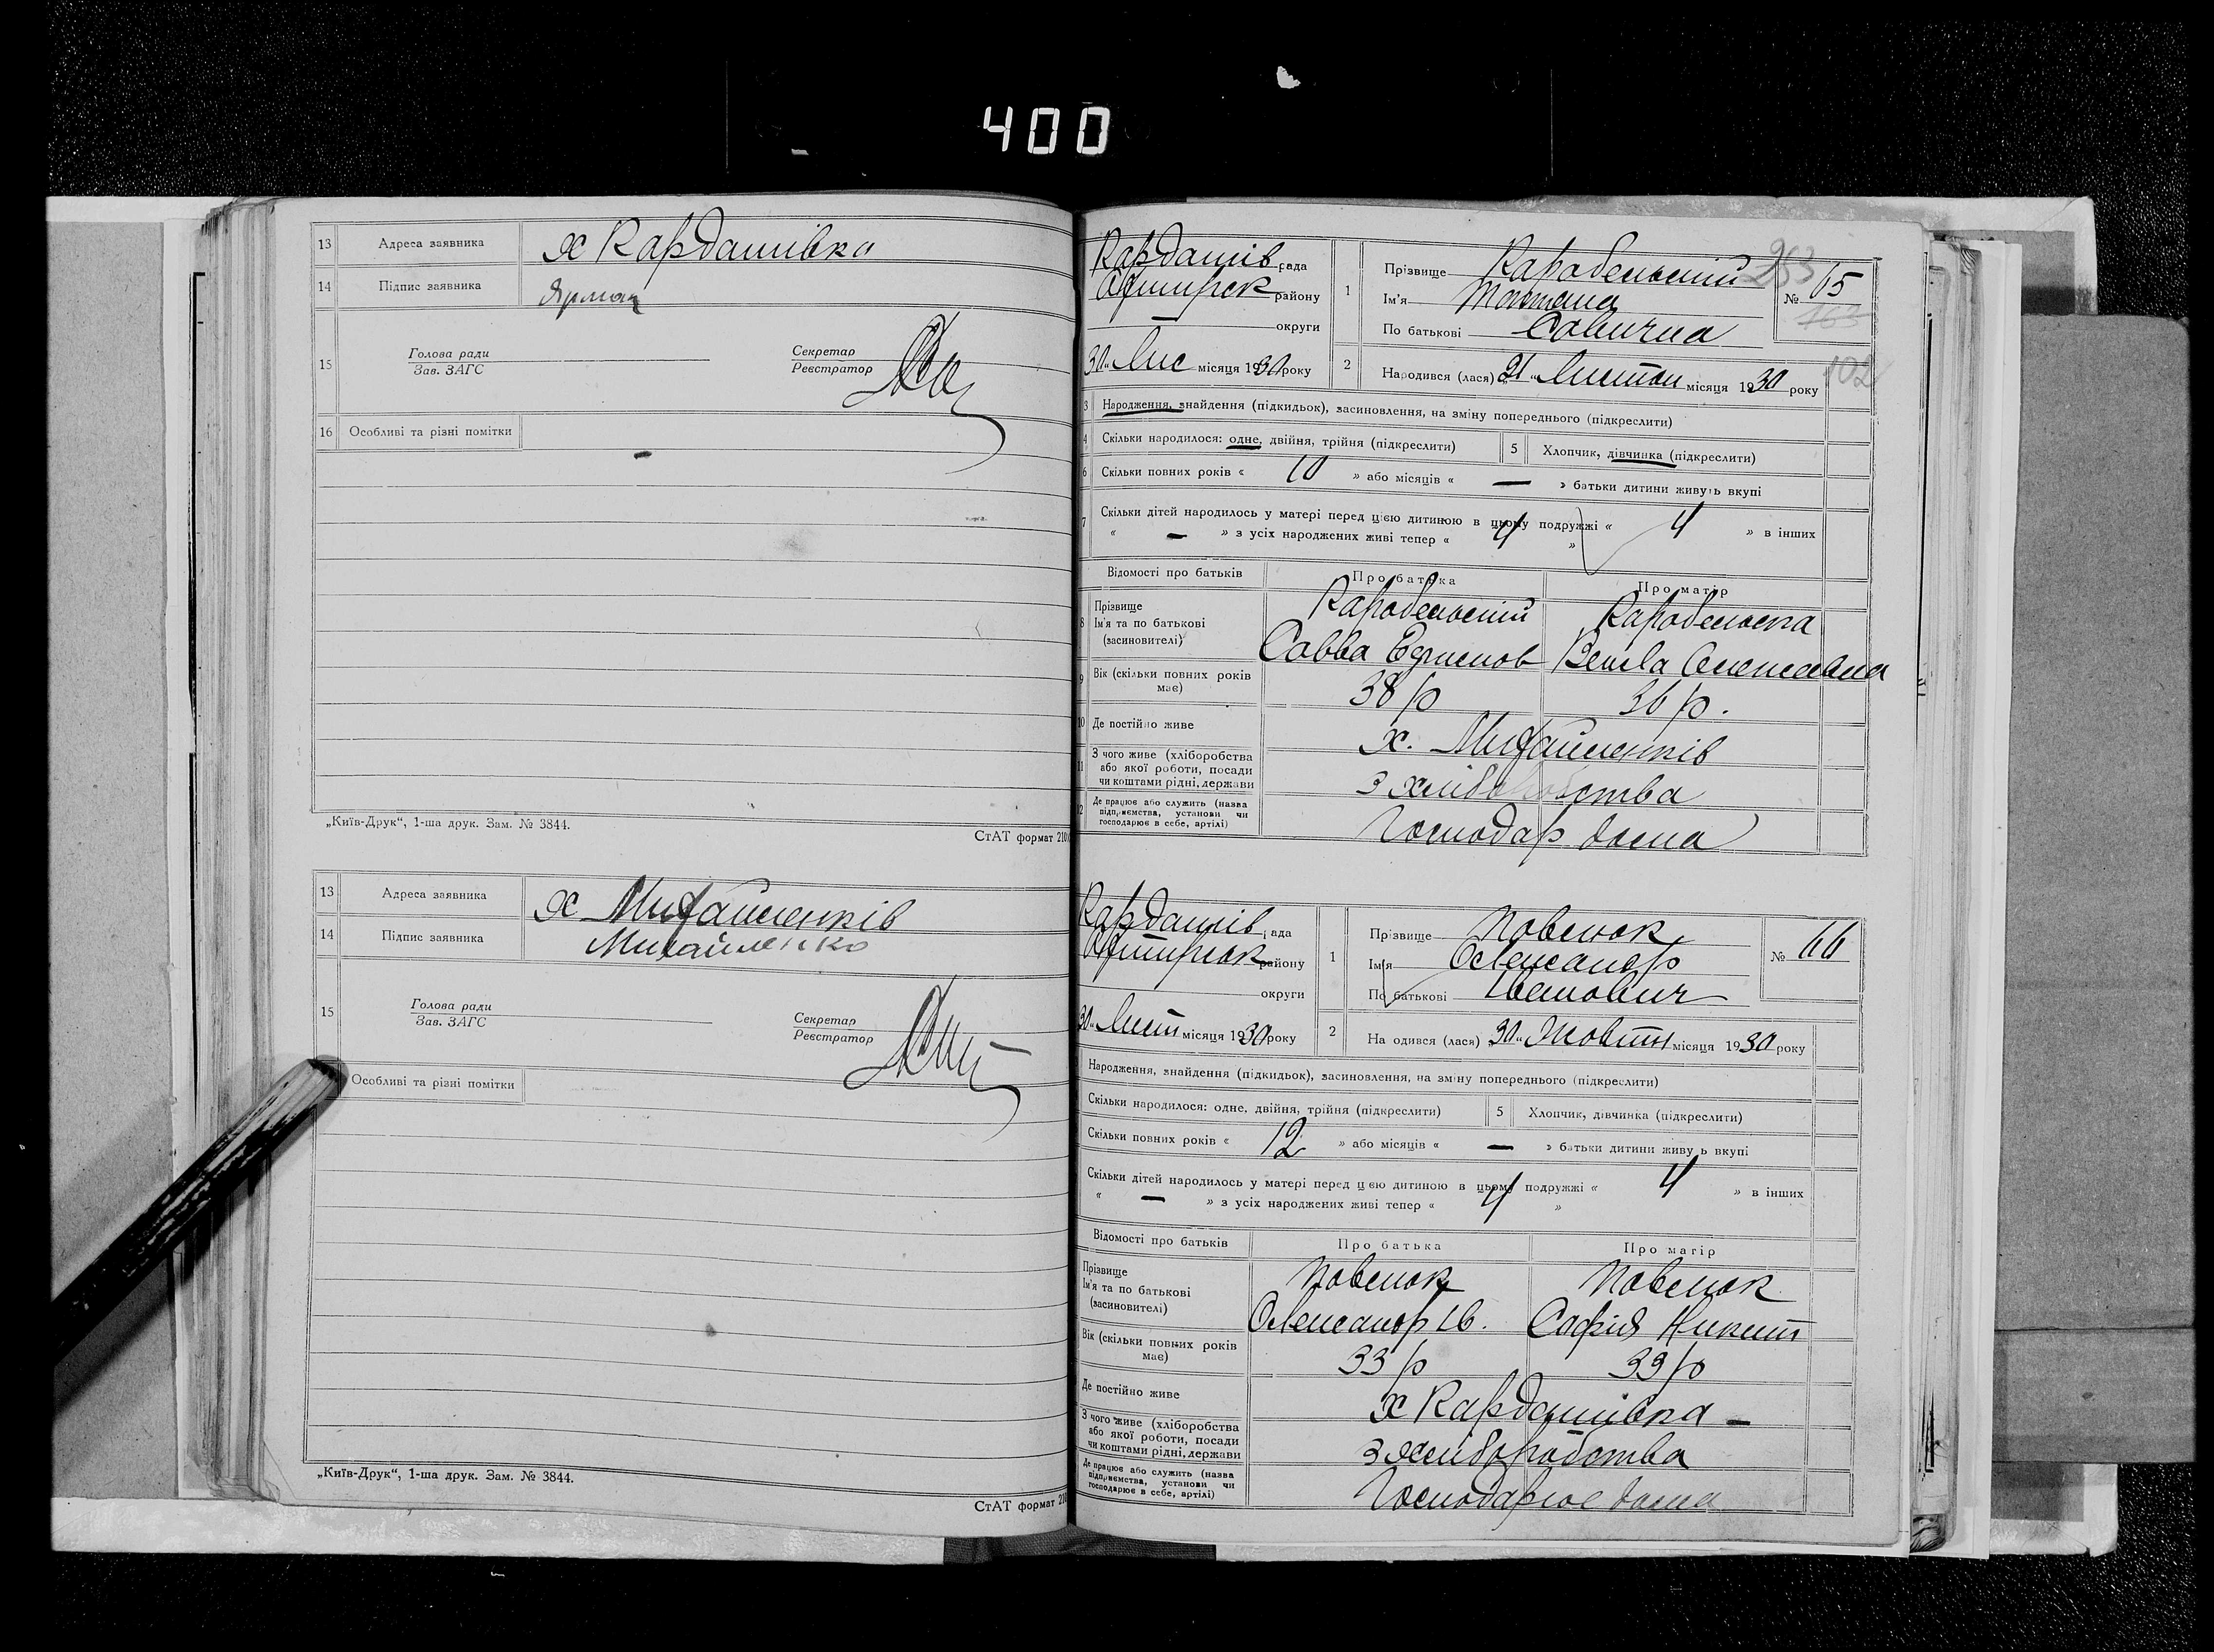 400
13 Адреса заявника х Кардашівка
14 Підпис заявника
15 Голова ради Секретар
Зав. ЗАГС Реєстратор
16 Особливі та різні помітки
„Київ-Друк“, 1-ша друк. Зам. № 3844.
СтАТ формат 210
13 Адреса заявника х Михайленків
14 Підпис заявника Михайленко
15 Голова ради Секретар
Зав. ЗАГС Реєстратор
Особливі та різні помітки
„Київ-Друк“, 1-ша друк. Зам. № 3844.
СтАТ формат 210
Кардашів рада
району
округи
30 „ Лис місяця 1930 року
1 Прізвище 253
Ім'я № 65
По батькові Савична 163
2 Народився (лася) 21 „ Листоп місяця 1930 року 102
3 Народження, знайдення (підкидьок), засиновлення, на зміну попереднього (підкреслити)
4 Скільки народилося: одне, двійня, трійня (підкреслити) 5 Хлопчик, дівчинка (підкреслити)
6 Скільки повних років « 10 » або місяців « — » батьки дитини живуть вкупі
7 Скільки дітей народилось у матері перед цією дитиною в цьому подружжі « 4 » в інших
« — » з усіх народжених живі тепер « 4 »
Відомості про батьків Про батька Про матір
8 Прізвище
Ім'я та по батькові Савва
(засиновителі)
9 Вік (скільки повних років має) 38 р 36 р.
10 Де постійно живе х. Михайленків
11 З чого живе (хліборобства
або якої роботи, посади з хліборобства
чи коштами рідні, держави
12 Де працює або служить (назва
підприємства, установи чи Господар
господарює в себе, артілі)
Кардашів рада
району
округи
30 „ Лист місяця 1930 року
1 Прізвище Повенок
Ім'я Олександр № 66
По батькові Іванович
2 На одився (лася) 30 „ Жовтн місяця 1930 року
Народження, знайдення (підкидьок), засиновлення, на зміну попереднього (підкреслити)
Скільки народилося: одне, двійня, трійня (підкреслити) 5 Хлопчик, дівчинка (підкреслити)
Скільки повних років « 12 » або місяців « — » батьки дитини живу ь вкупі
Скільки дітей народилось у матері перед цією дитиною в цьому подружжі « 4 » в інших
« — » з усіх народжених живі тепер « 4 »
Відомості про батьків Про батька Про матір
Прізвище Повенок Повенок
Ім'я та по батькові Олександр Ів. Софія Никит
(засиновителі)
Вік (скільки повних років має) 33 р 33 р
Де постійно живе х Кардашівка —
З чого живе (хліборобства
або якої роботи, посади з хліборобства
чи коштами рідні, держави
Де працює або служить (назва
підприємства, установи чи Господарює
господарює в себе, артілі)